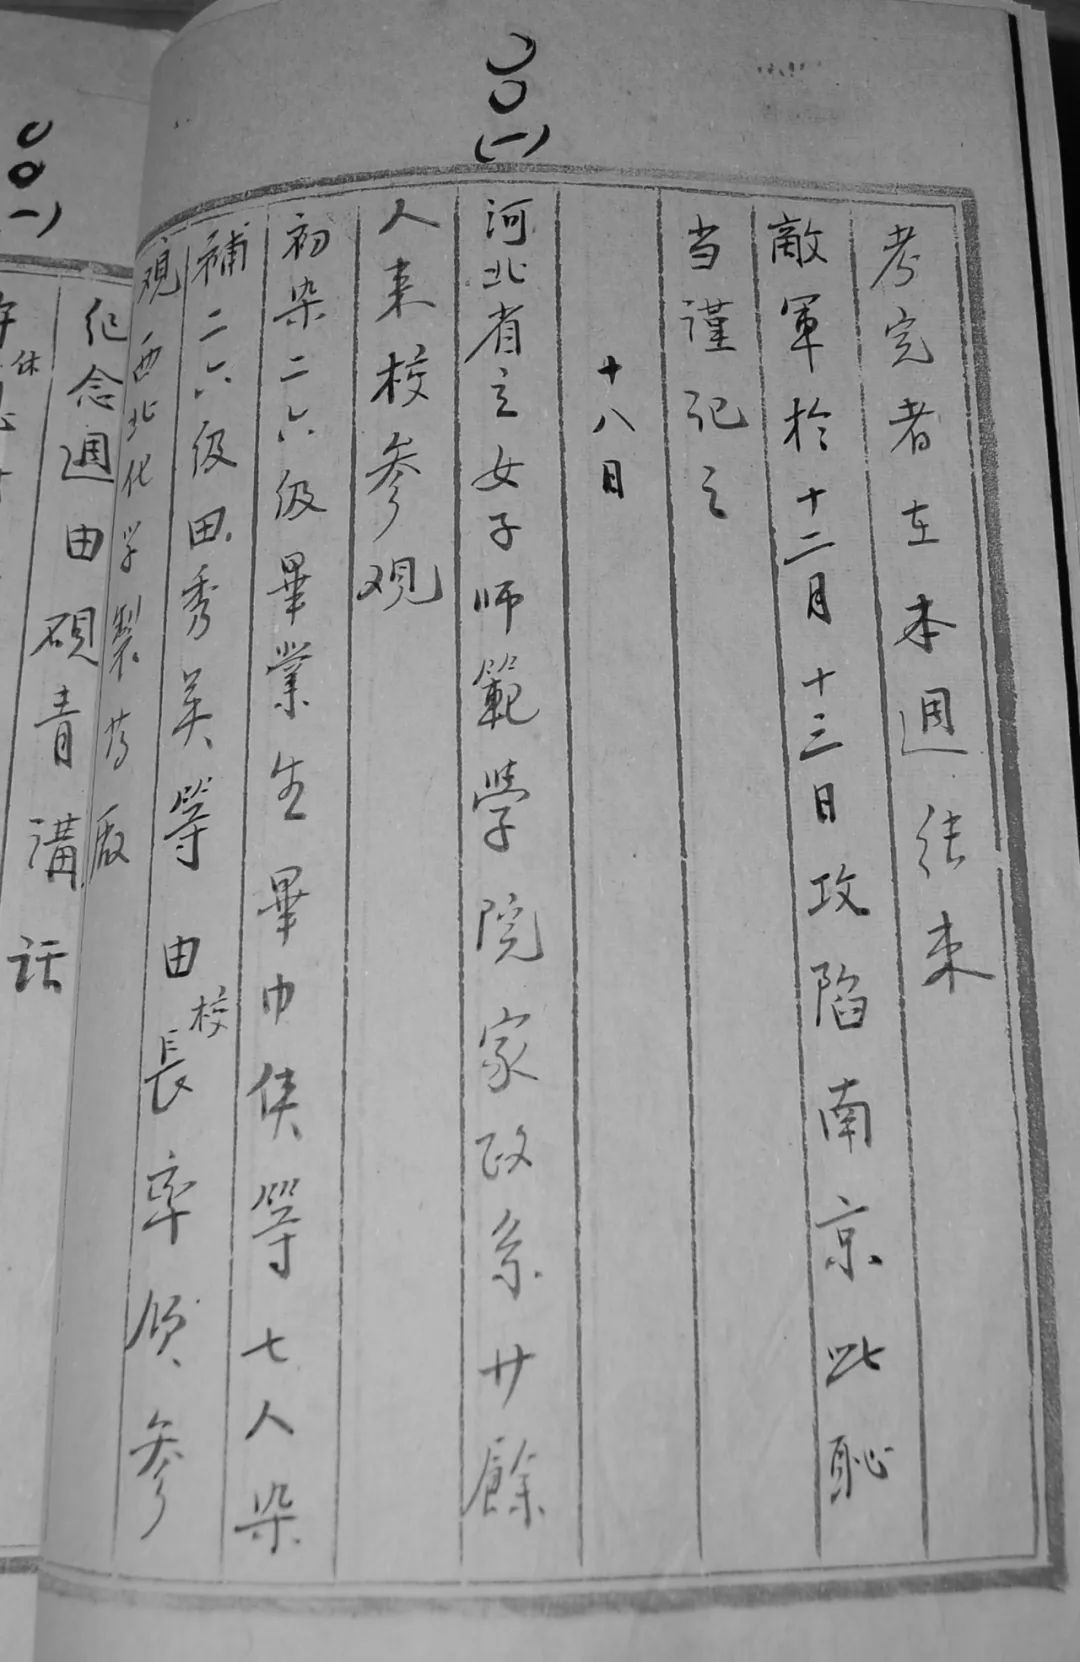 考完者在本週结束
敵軍於十二月十三日攻陷南京此恥
当謹記之
十八日
河北省立女子师範學院家政系廿餘
人来校参观
初染二六级畢業生畢巾侠等七人染
補二六级田秀英等由校長率領参
观西北化学製药厰
纪念週由硯青講话